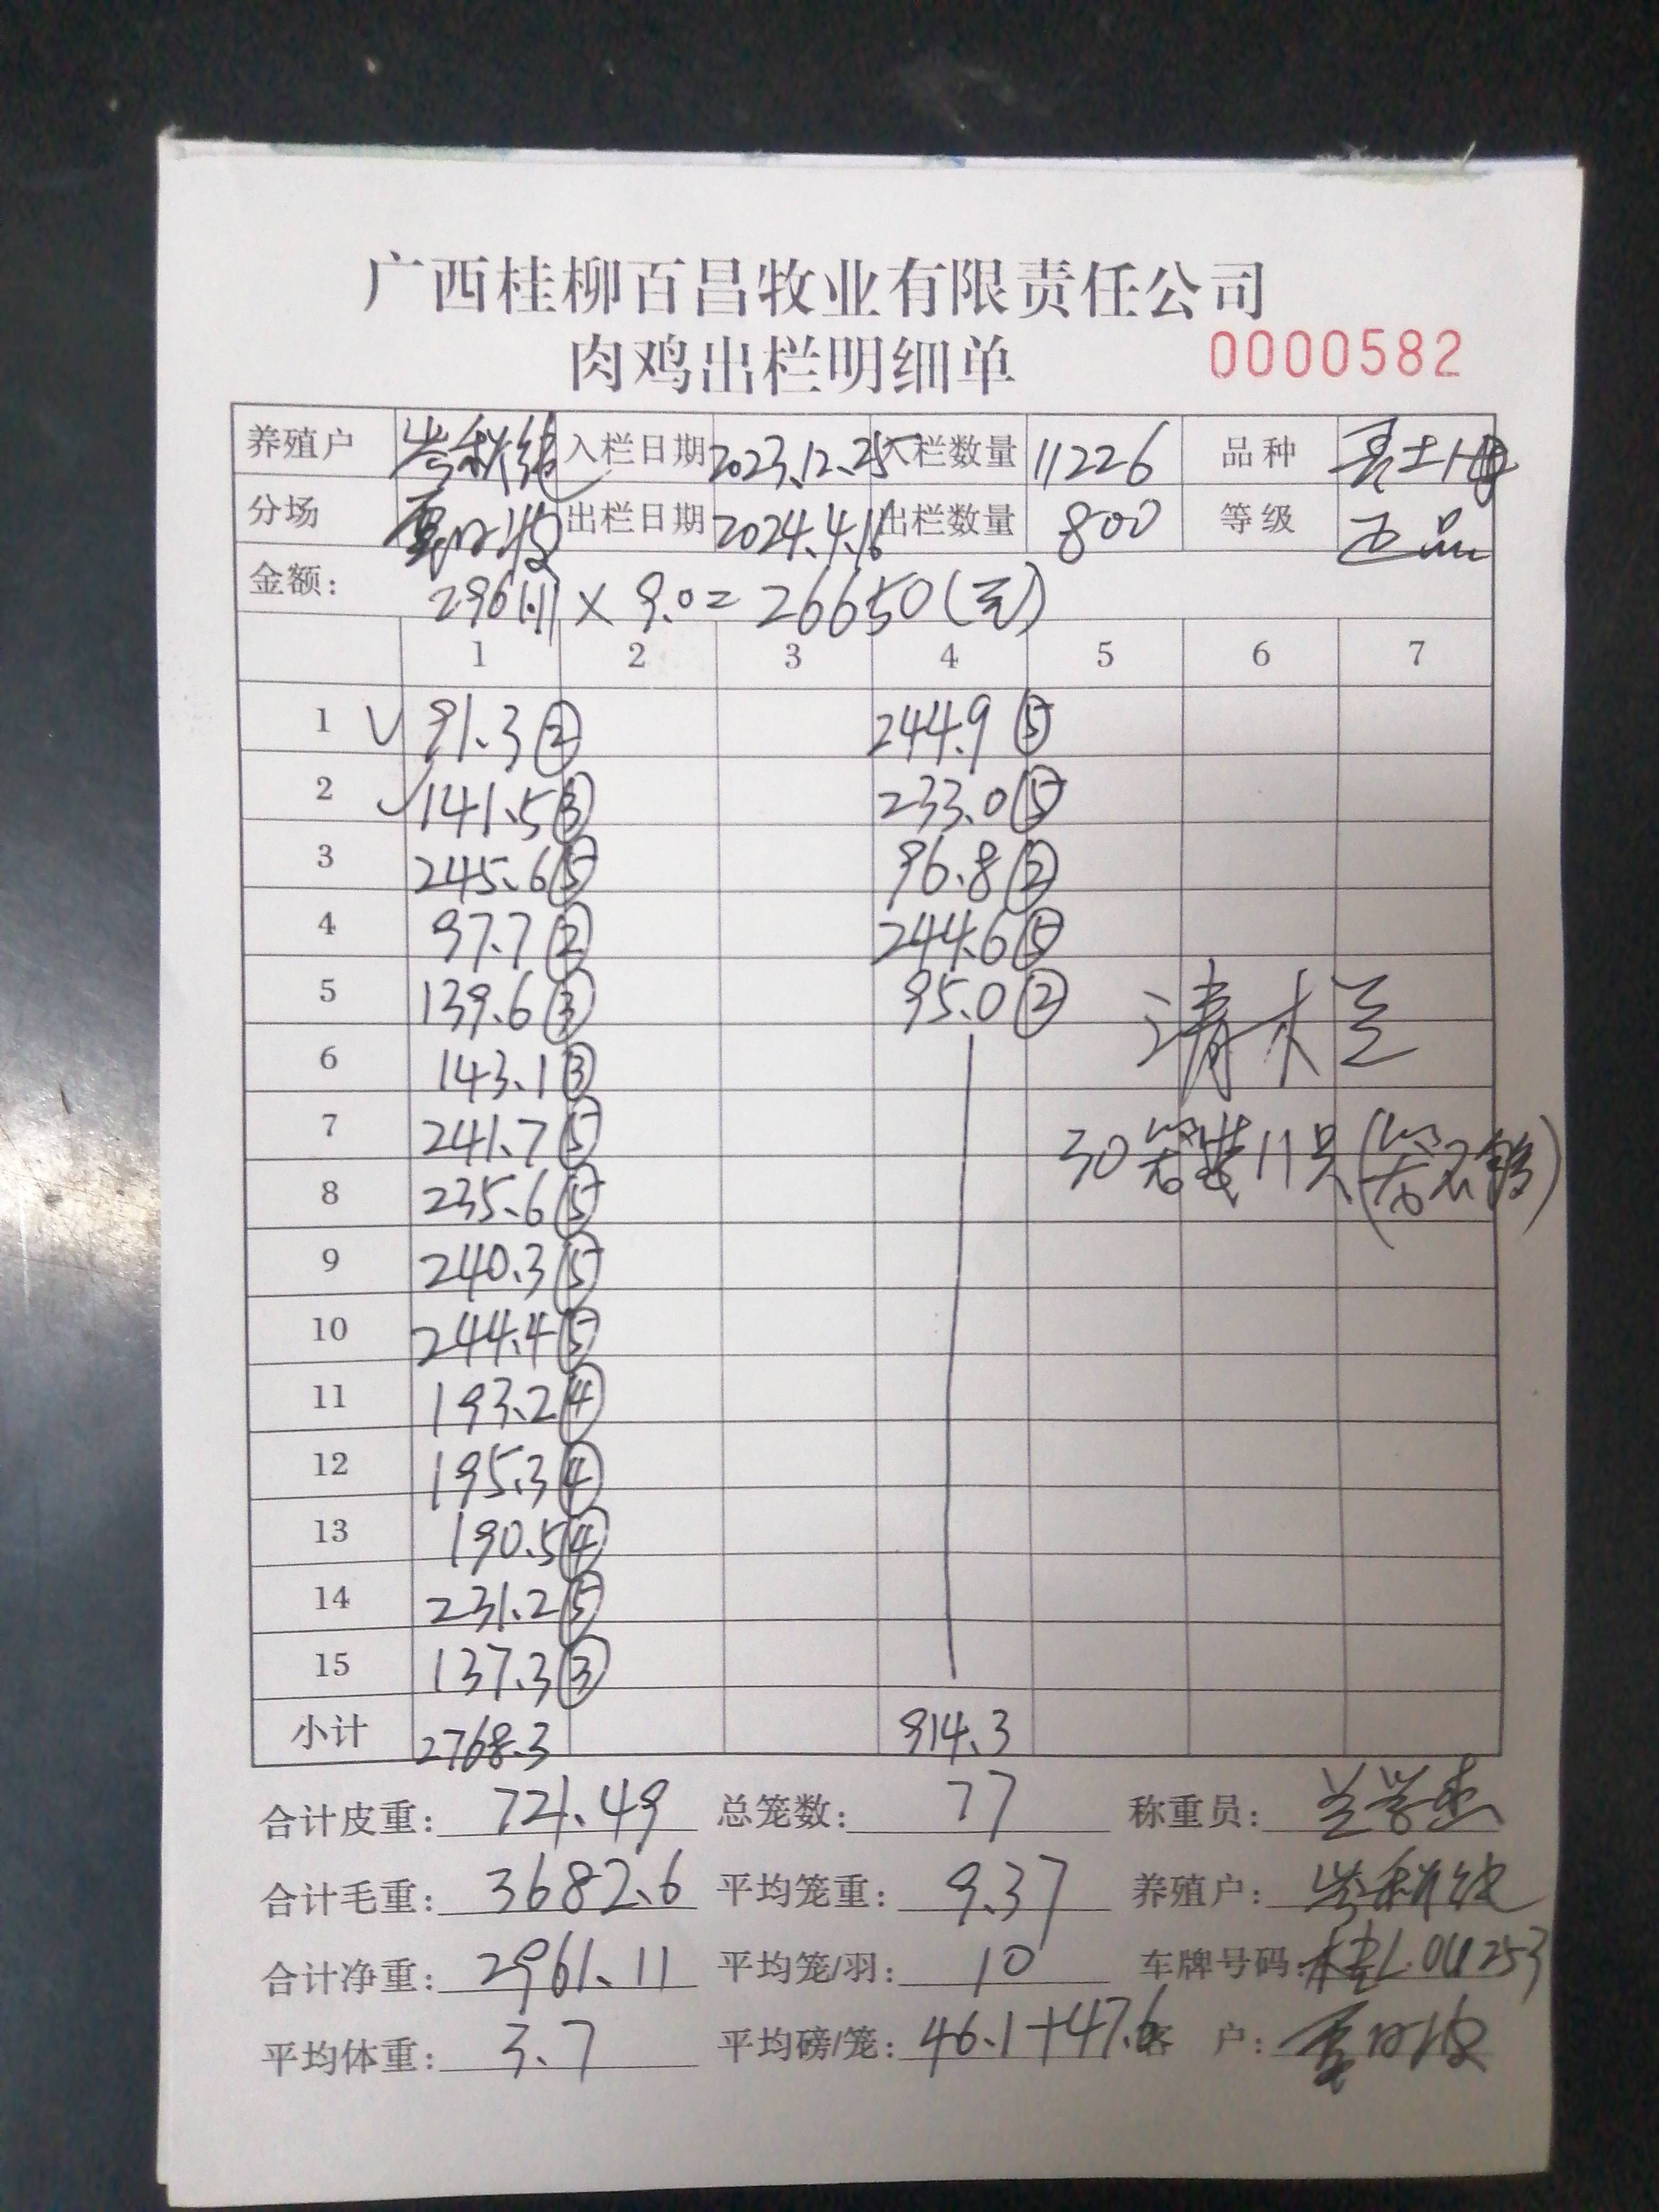 广西桂柳百昌牧业有限责任公司
肉鸡出栏明细单 0000582
养殖户 入栏日期 2023.12.25 入栏数量 11226 品种
分场 出栏日期 2024.4.16 出栏数量 800 等级 正品
金额: 2961.11 × 9.0 = 26650(元)
1 2 3 4 5 6 7
1 √ 91.3 ② 244.9 ⑤
2 √ 141.5 ③ 233.0 ⑤
3 245.6 ⑤ 96.8 ②
4 97.7 ② 244.6 ⑤
5 139.6 ③ 95.0 ② 清栏
6 143.1 ③
7 241.7 ⑤ 30笼装11只(笼不够)
8 235.6 ⑤
9 240.3 ⑤
10 244.4 ⑤
11 193.2 ④
12 195.3 ④
13 190.5 ④
14 231.2 ⑤
15 137.3 ③
小计 2768.3 914.3
合计皮重: 721.49 总笼数: 77 称重员:
合计毛重: 3682.6 平均笼重: 9.37 养殖户:
合计净重: 2961.11 平均笼/羽: 10 车牌号码:
平均体重: 3.7 平均磅/笼: 46.1+47.6 客户: